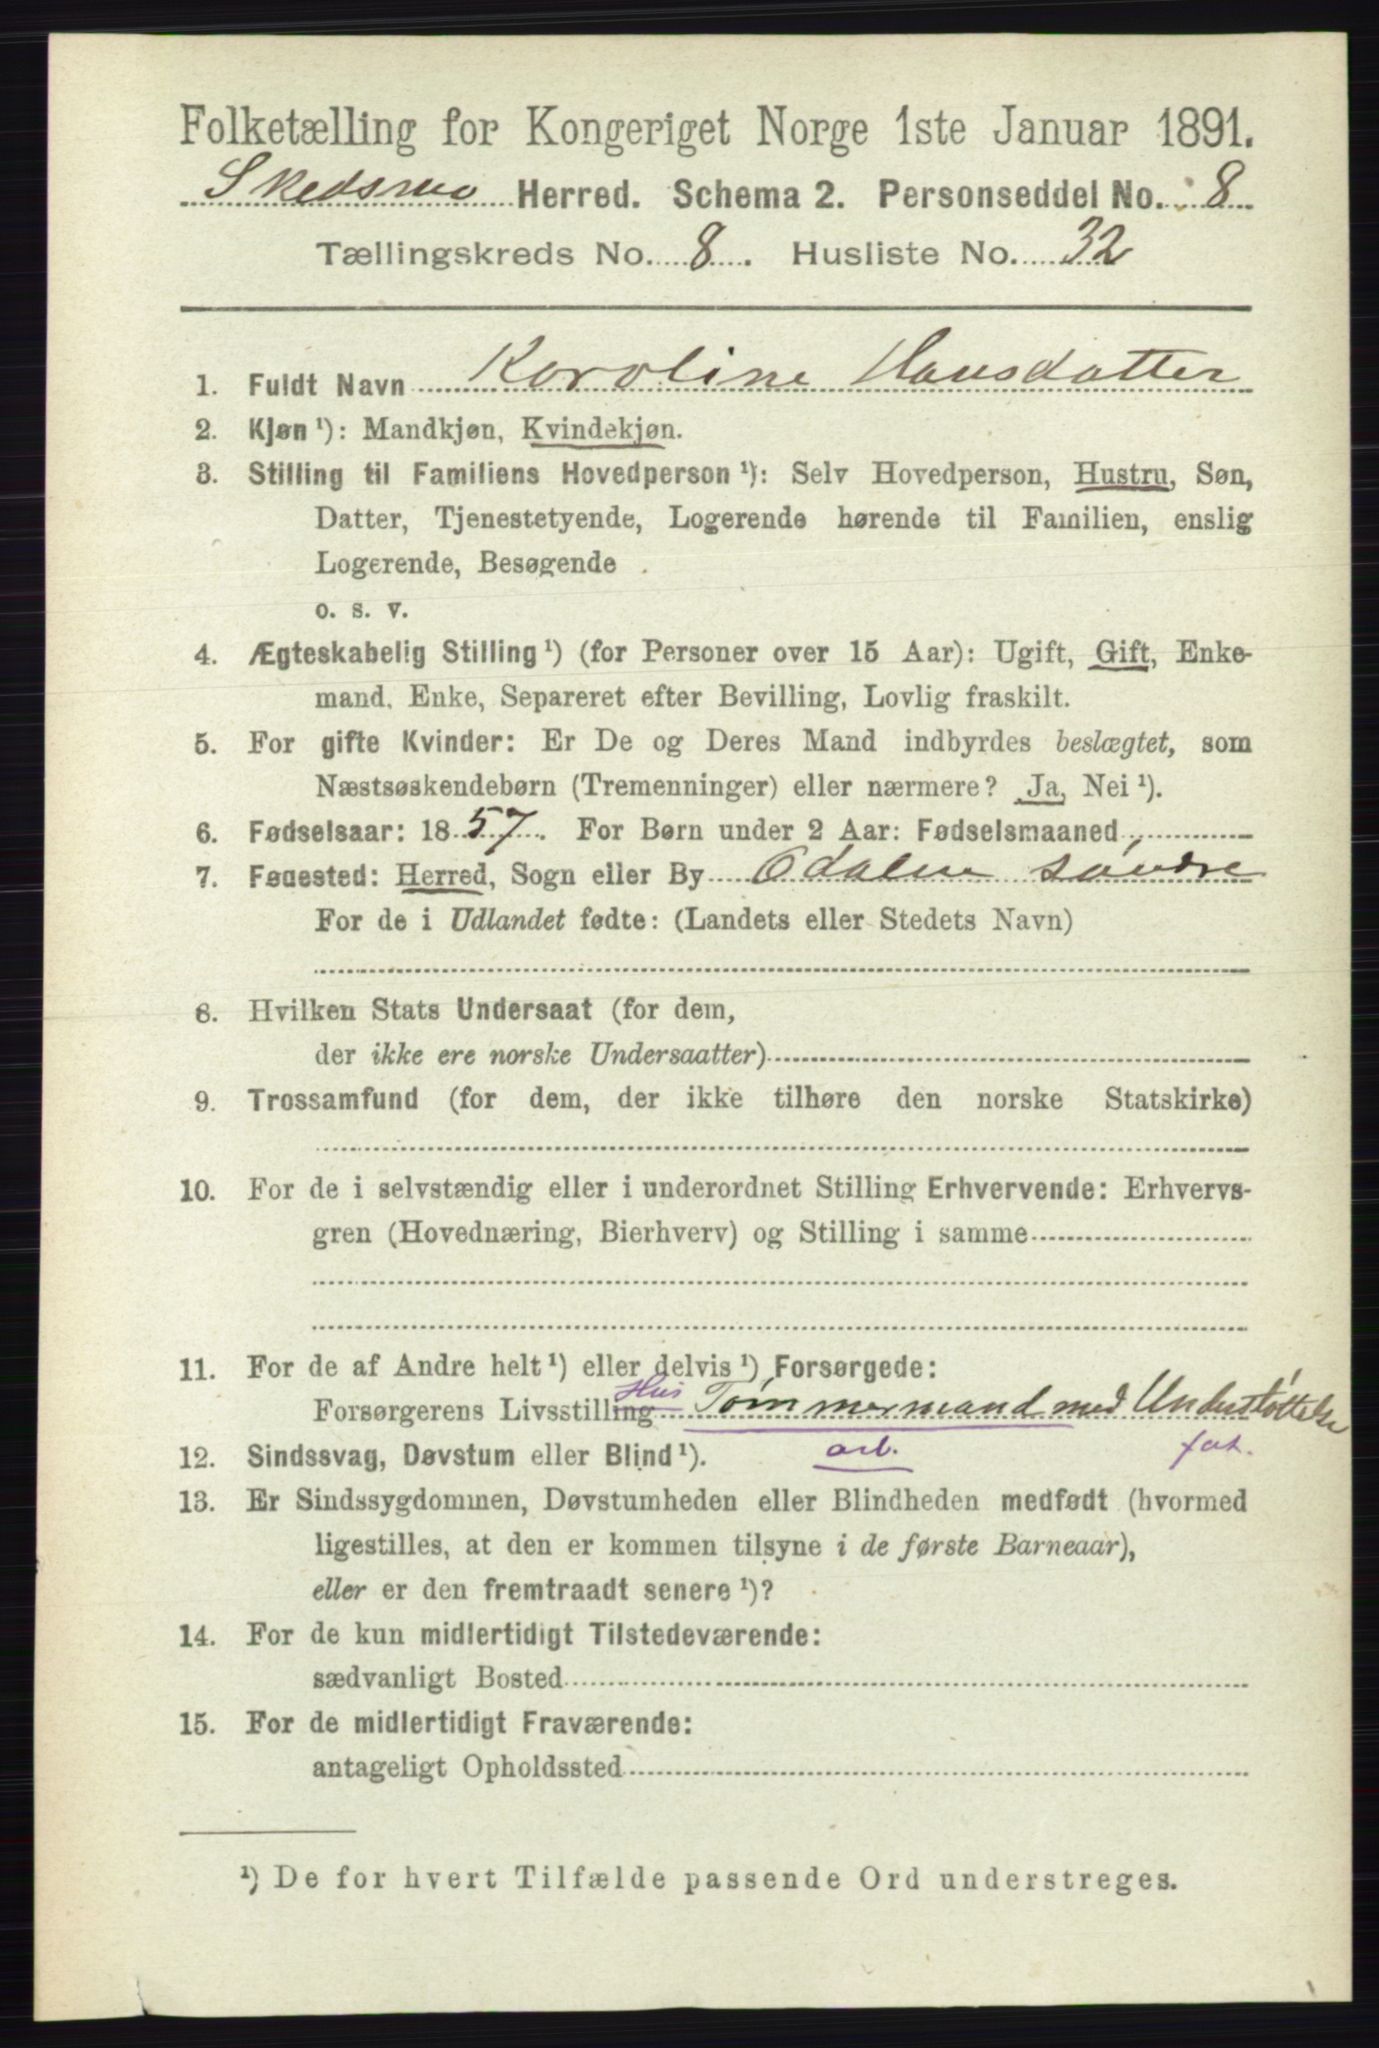 Folketælling for Kongeriget Norge 1ste Januar 1891.
Skedsmo Herred. Schema 2. Personseddel No. 8
Tællingskreds No. 8. Husliste No. 32
1. Fuldt Navn Karoline Hansdatter
2. Kjøn ¹): Mandkjøn, Kvindekjøn.
3. Stilling til Familiens Hovedperson ¹): Selv Hovedperson, Hustru, Søn,
Datter, Tjenestetyende, Logerende hørende til Familien, enslig
Logerende, Besøgende
o. s. v.
4. Ægteskabelig Stilling ¹) (for Personer over 15 Aar): Ugift, Gift, Enke-
mand, Enke, Separeret efter Bevilling, Lovlig fraskilt.
5. For gifte Kvinder: Er De og Deres Mand indbyrdes beslægtet, som
Næstsøskendebørn (Tremenninger) eller nærmere? Ja, Nei ¹).
6. Fødselsaar: 1857. For Børn under 2 Aar: Fødselsmaaned
7. Fødested: Herred, Sogn eller By Odalen søndre
For de i Udlandet fødte: (Landets eller Stedets Navn)
8. Hvilken Stats Undersaat (for dem,
der ikke ere norske Undersaatter)
9. Trossamfund (for dem, der ikke tilhøre den norske Statskirke)
10. For de i selvstændig eller i underordnet Stilling Erhvervende: Erhvervs-
gren (Hovednæring, Bierhverv) og Stilling i samme
11. For de af Andre helt ¹) eller delvis ¹) Forsørgede:
Hus
Forsørgerens Livsstilling Tømmermand med Understøttelse
arb. fat.
12. Sindssvag, Døvstum eller Blind ¹).
13. Er Sindssygdommen, Døvstumheden eller Blindheden medfødt (hvormed
ligestilles, at den er kommen tilsyne i de første Barneaar),
eller er den fremtraadt senere ¹)?
14. For de kun midlertidigt Tilstedeværende:
sædvanligt Bosted
15. For de midlertidigt Fraværende:
antageligt Opholdssted
¹) De for hvert Tilfælde passende Ord understreges.